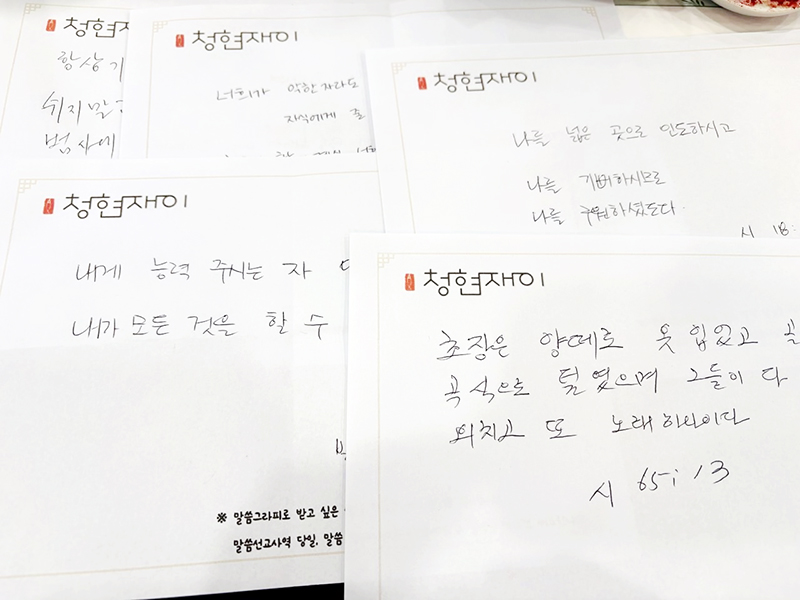 청현재이
항상 기
쉬지 말
범사에
청현재이
너희가 악한 자라도
자식에게 좋
청현재이
나를 넓은 곳으로 인도하시고
나를 기뻐하시므로
나를 구원하셨도다
시 18:
청현재이
내게 능력 주시는 자
내가 모든 것을 할 수
※ 말씀그라피로 받고 싶은
말씀선교사역 당일, 말씀
청현재이
초장은 양떼로 옷 입었고 골
곡식으로 덮였으며 그들이 다
외치고 또 노래하나이다
시 65:13